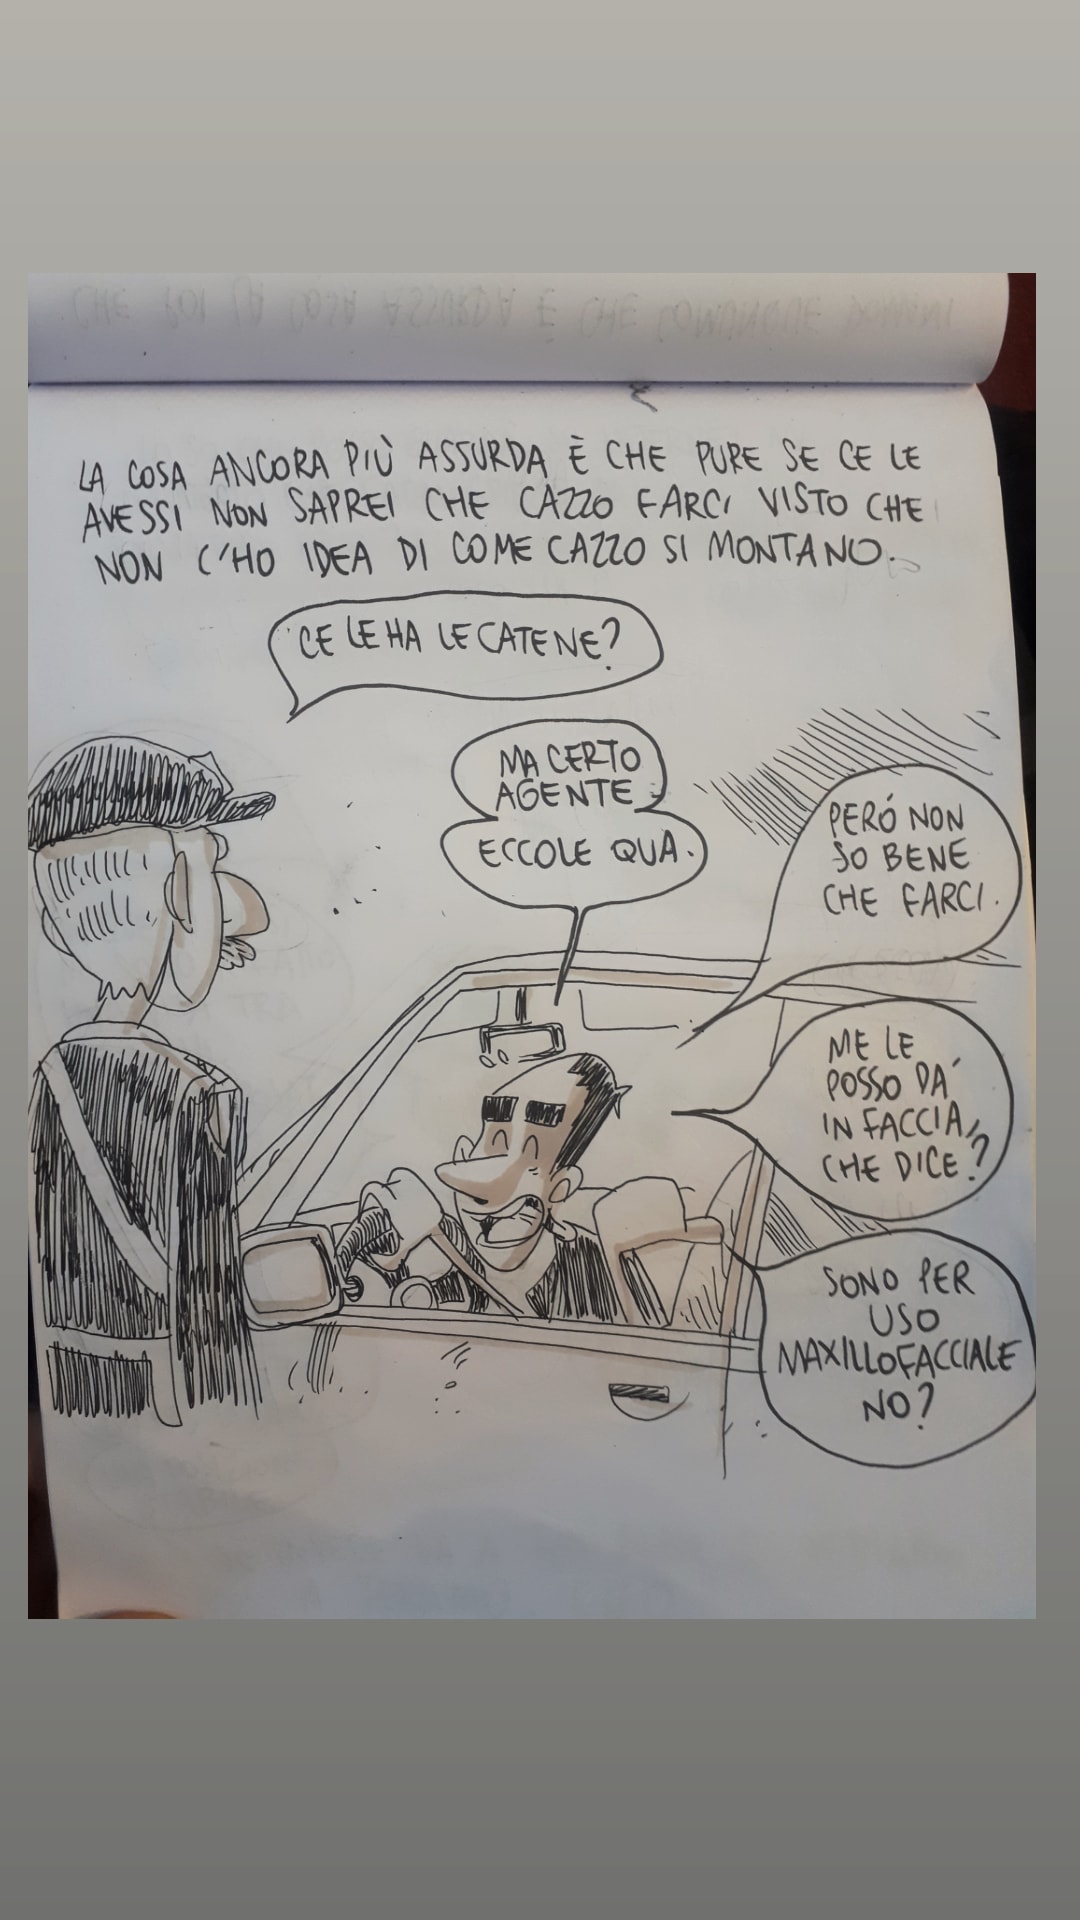 CHE POI LA COSA ASSURDA È CHE COMUNQUE DOMANI
LA COSA ANCORA PIÙ ASSURDA È CHE PURE SE CE LE
AVESSI NON SAPREI CHE CAZZO FARCI VISTO CHE
NON C'HO IDEA DI COME CAZZO SI MONTANO.
CE LE HA LE CATENE?
MA CERTO
AGENTE
ECCOLE QUA.
PERÓ NON
SO BENE
CHE FARCI.
ME LE
POSSO DA'
IN FACCIA,
CHE DICE?
SONO PER
USO
MAXILLOFACCIALE
NO?